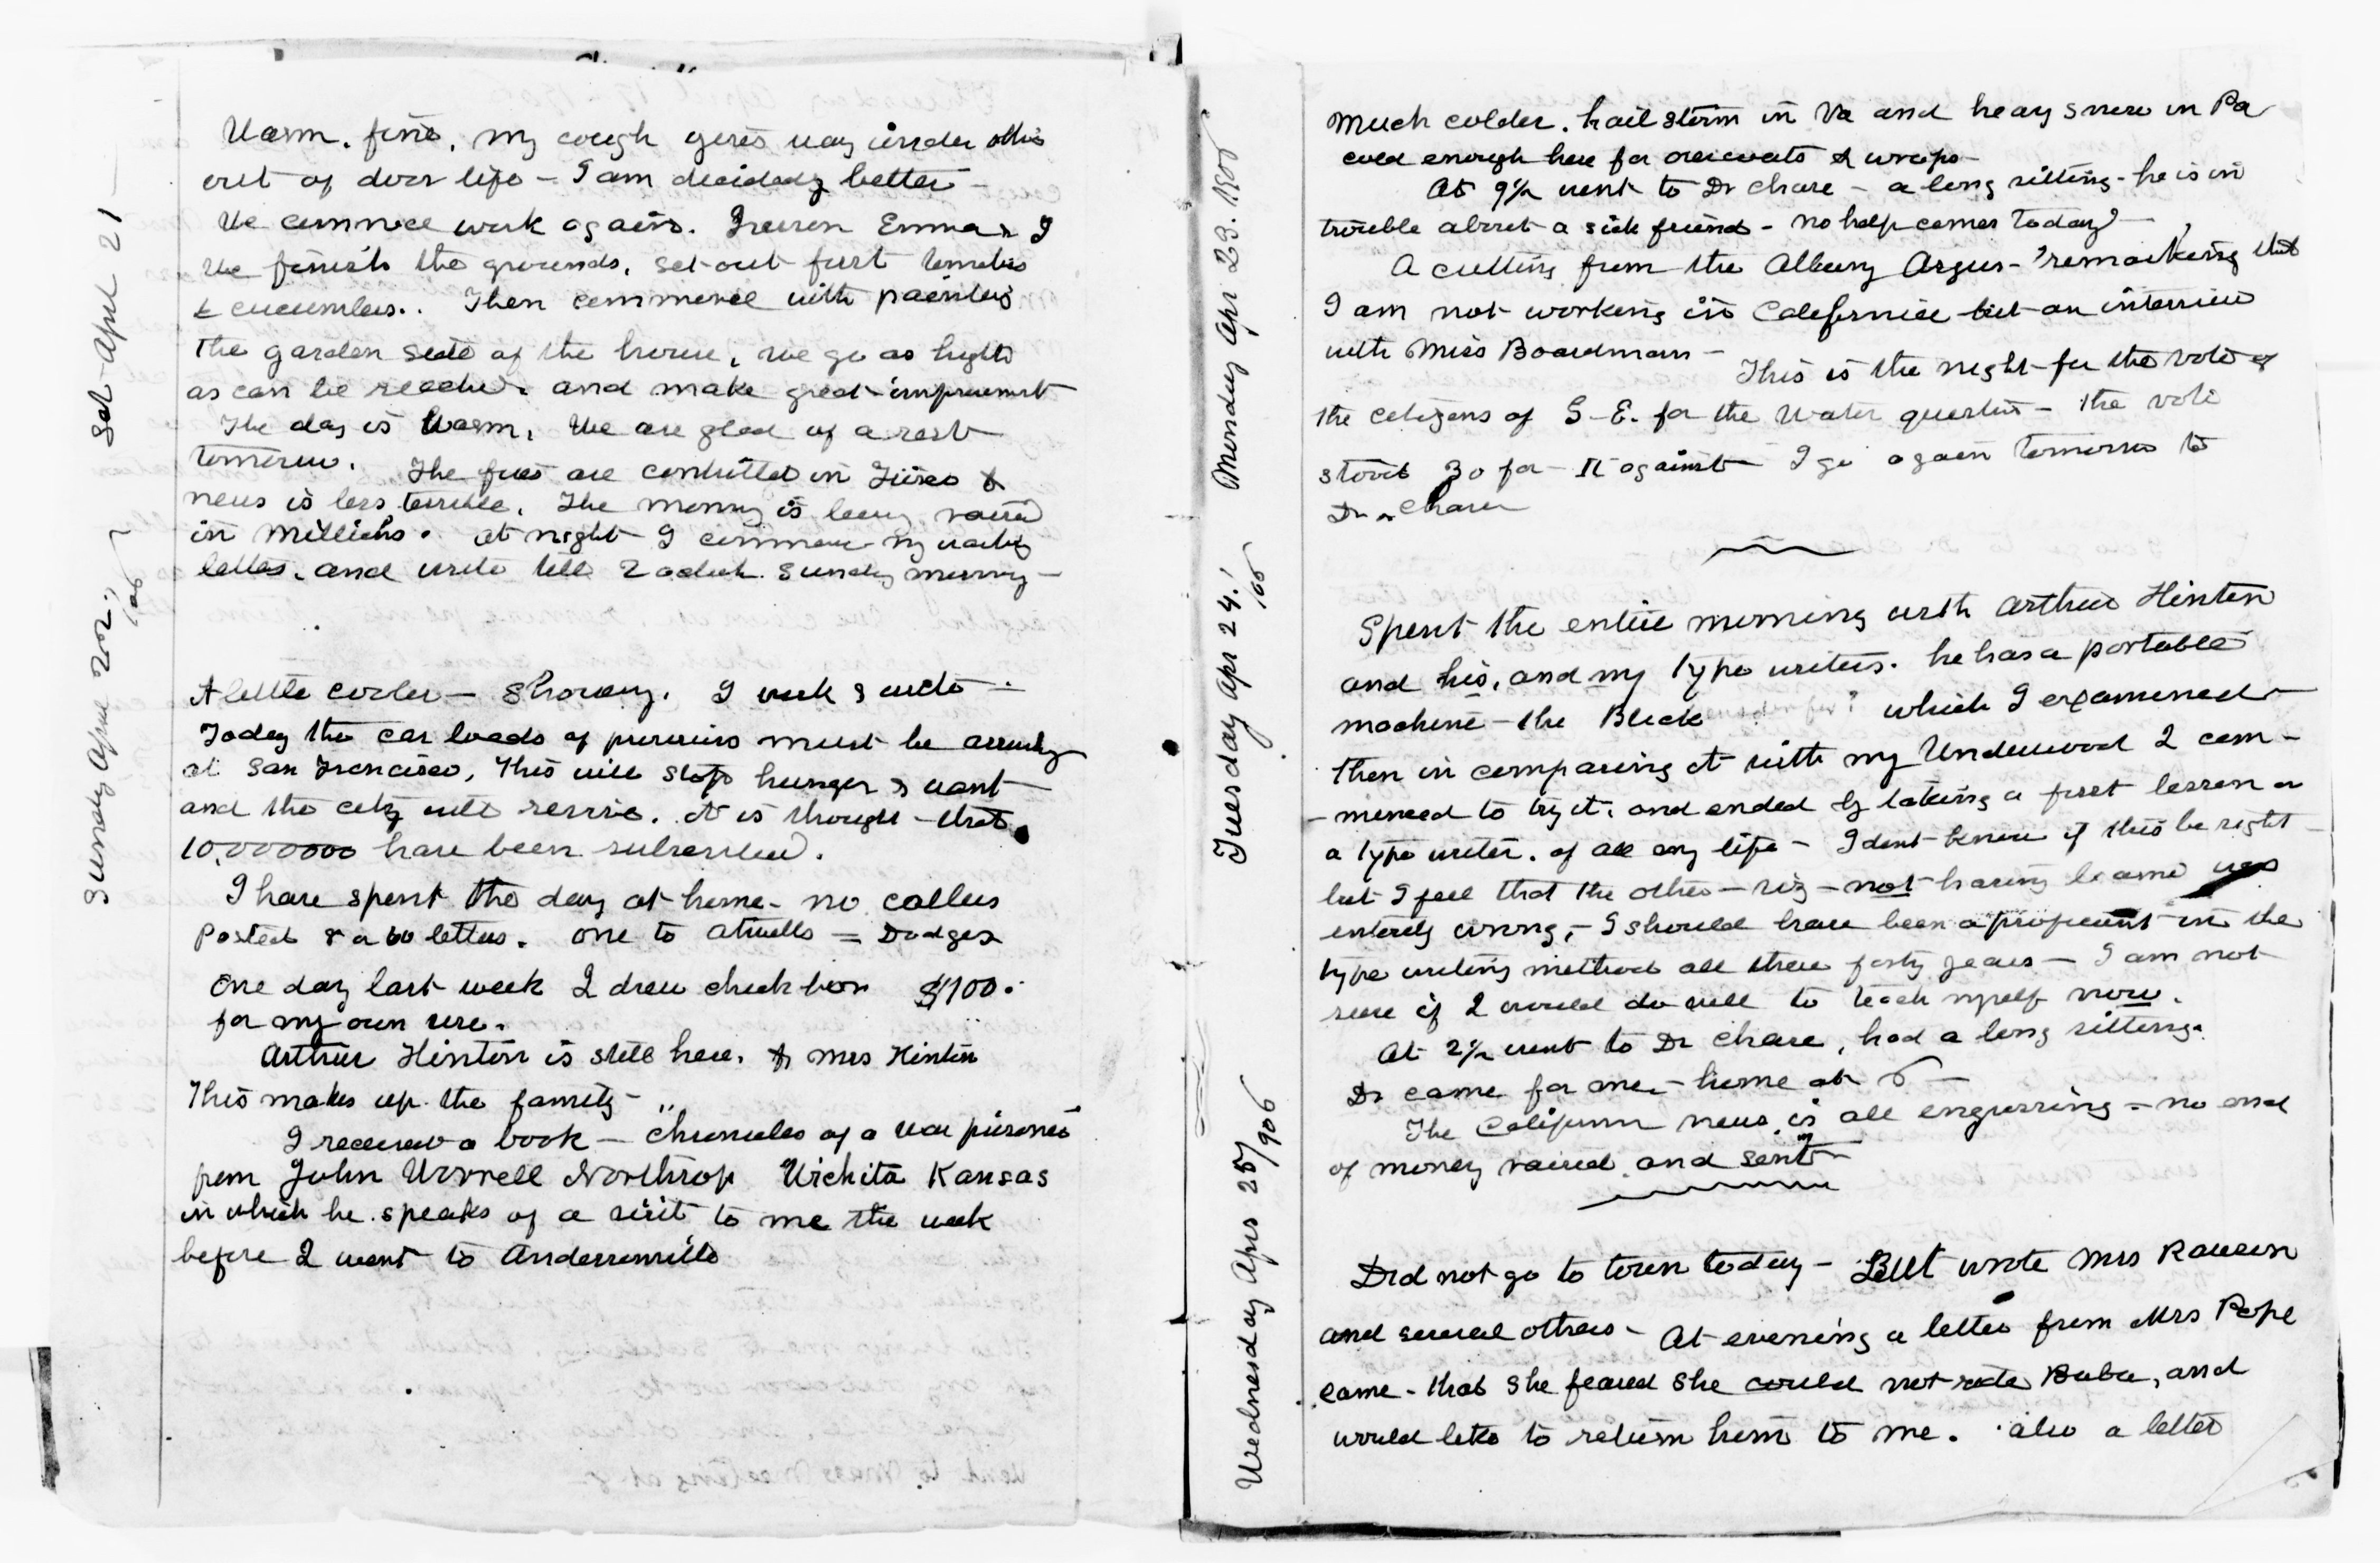 Sat - April 21 -
Warm. fine. my cough gives way under this
out of door life - I am decidedly better -
We commnce work again. Emma & I
We finish the grounds, set-out first tomatoes
& cucumbers.. Then commence with painters
the garden side of the house, we go as hight
as can be reached and make great improvemnt
The day is Warm, We are glad of a rest
tomorrow. The fires are controlled in Frisco &
news is less terrible. The money is being raised
in Millions. at night I commence my weekly
letters. and write till 2 oclock. Sunday morning -
Sunday April 22, 1906
A little cooler - Showery. I work & write -
Today the car loads of provisions must be arriving
at San Francisco, This will stop hunger & want
and the city will revive. it is thought - that
10,000000 have been subscribed.
I have spent the day at home - no callers
Posted 8 or 10 letters. one to Atwells = Dodges
One day last week I drew check for $100.
for my own use.
Arthur Hinton is still here. & Mrs Hinton
This makes up the family - "
I received a book - Chronicles of a war prisoner
from John Worrell Northrop Wichita Kansas
in which he speaks of a visit to me the week
before I went to Andersonville
Monday Apr 23. 1906
Much colder. hail storm in Va and heavy snow in Pa
cold enough here for overcoats & wraps -
At 9½ went to Dr Chase - a long sitting - he is in
trouble about a sick friend - no help comes today -
A cutting from the Albany Argus - remarking that
I am not working in California but an interview
with Miss Boardman -
This is the night - for the vote of
the citizens of G - E. for the Water question - the vote
stood 30 for - against - I go again tomorrow to
Dr Chase
Tuesday Apr 24. 1906
Spent the entire morning with Arthur Hinton
and his, and my type writers. he has a portable
machine - the Blick ensderfer? which I examined
then in comparing it with my Underwood I com -
- menced to try it, and ended by taking a first lesson on
a type writer. of all my life - I dont know if this be right
but I feel that the other - viz - not having learned was
entirely wrong, - I should have been a proficient in the
type writing method all these forty years - I am not
sure if I would do well to teach myself now.
At 2½ went to Dr Chase, had a long sitting.
Dr came for me, - home at 6 -
The California news is all engrossing = no end
of money raised and sent -
Wednesday Apr 25/906
Did not go to town today - But wrote Mrs Rawson
and several others - At evening a letter from Mrs Pope
came - that she feared she could not ride Baba, and
would like to return him to me. also a letter